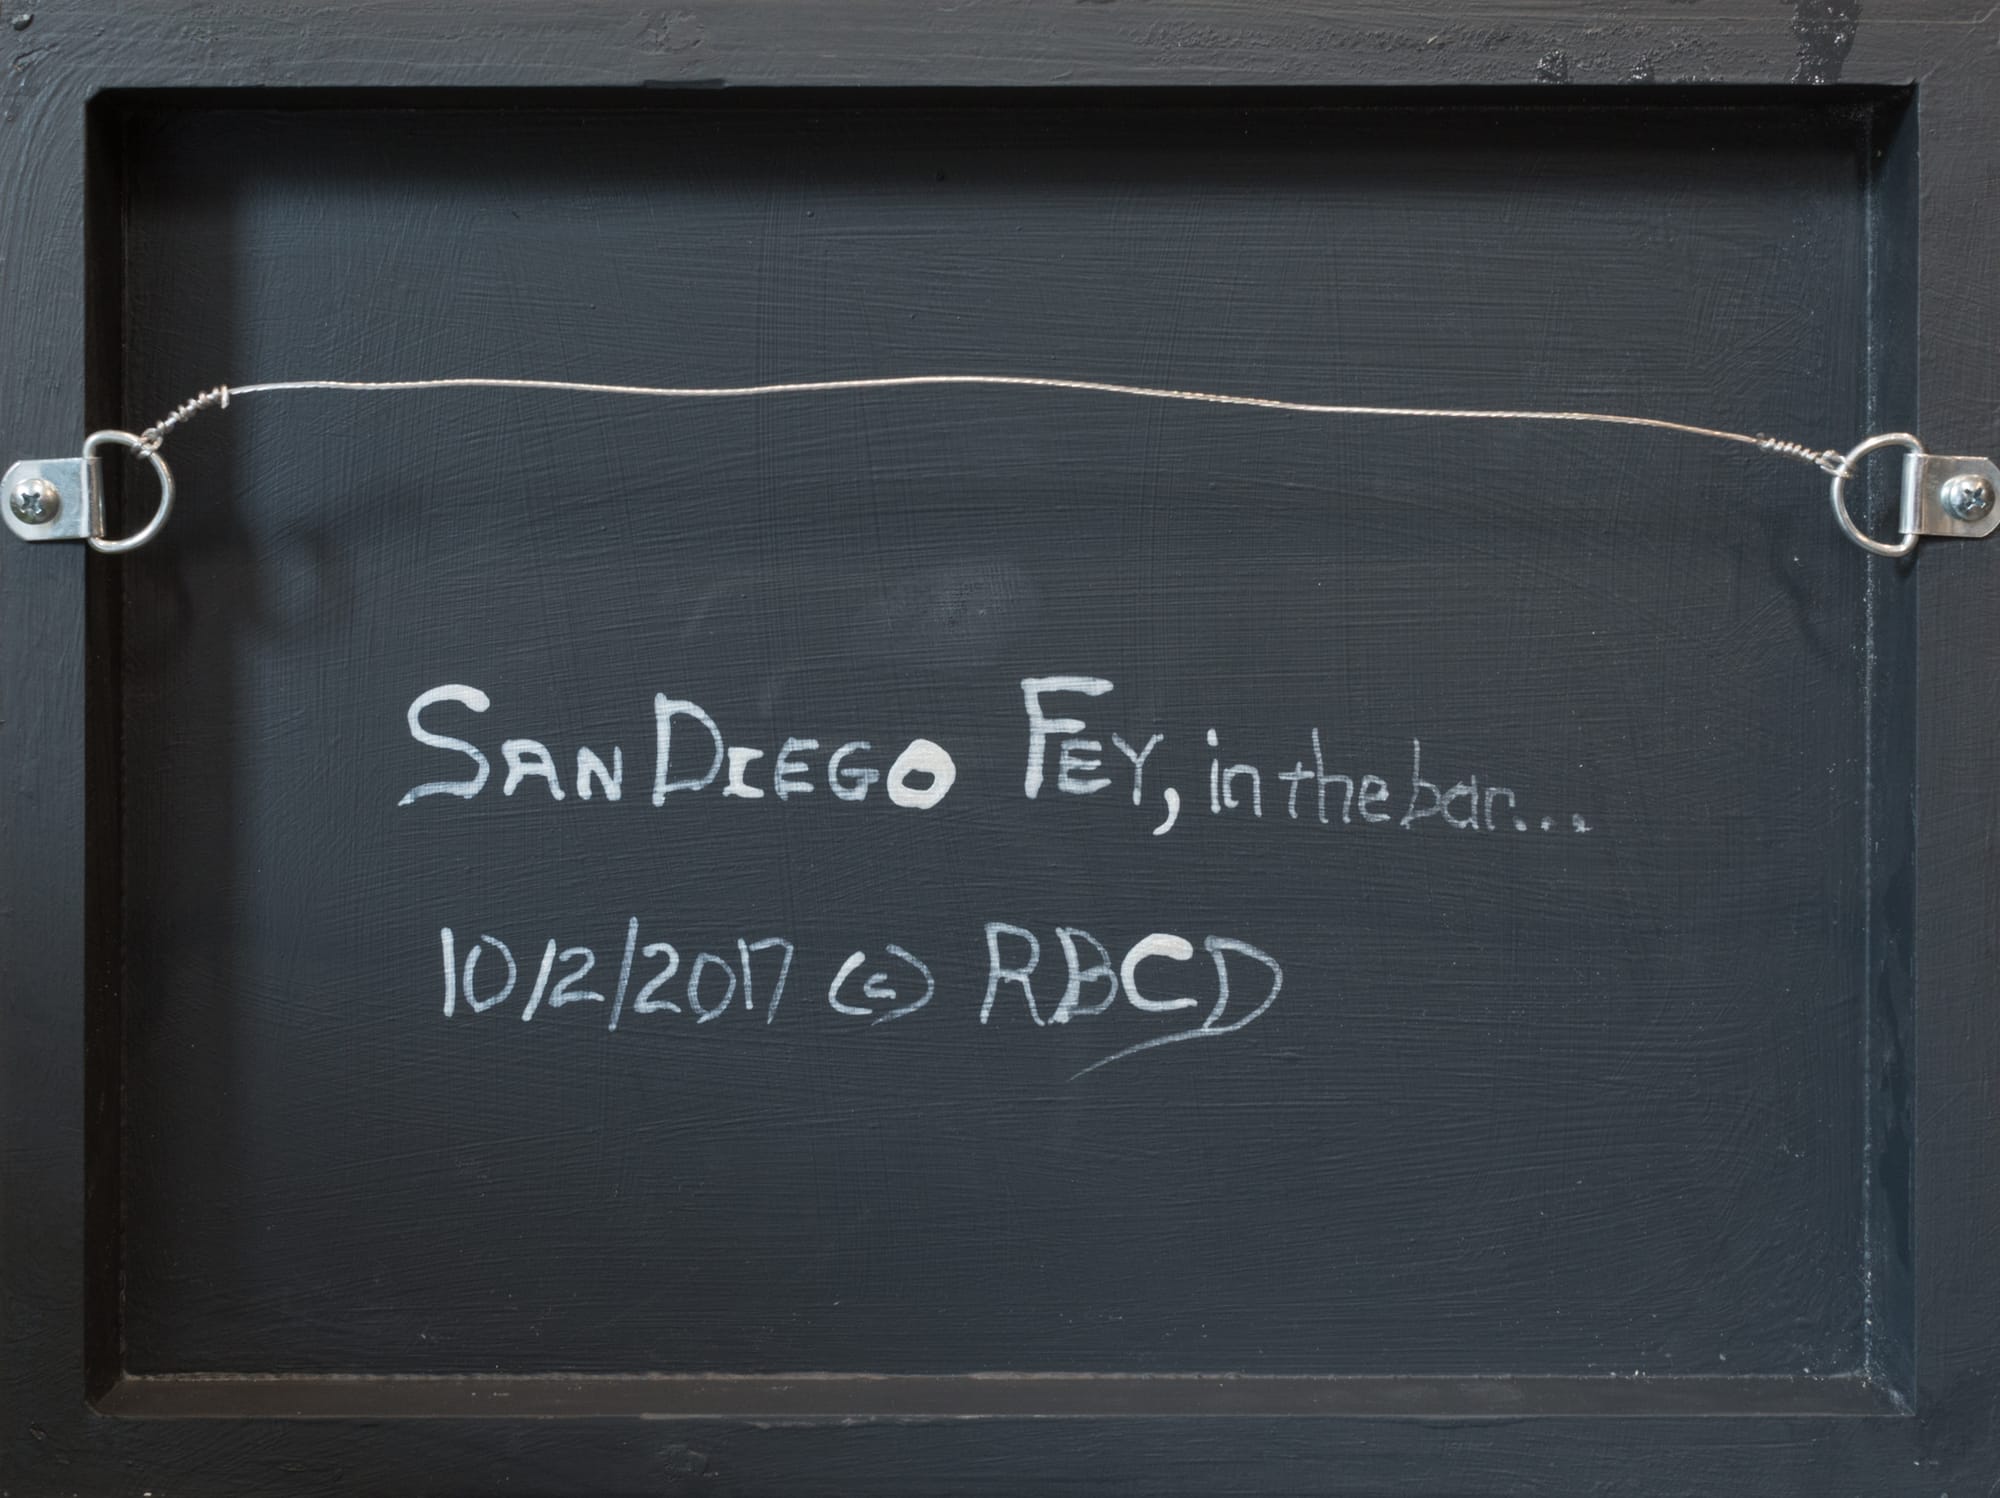 San Diego Fey, in the bar...
10/2/2017 (c) RBCD